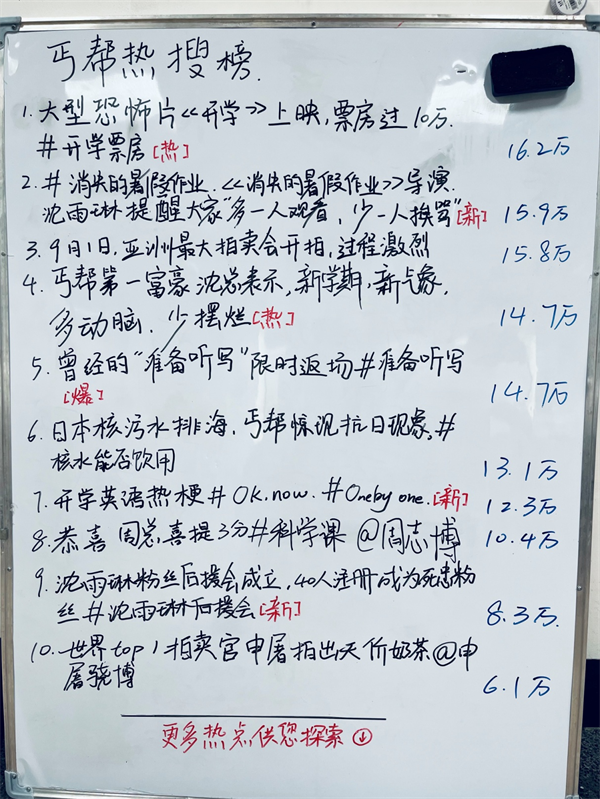 丐帮热搜榜.
1. 大型恐怖片《开学》上映,票房过10万.
#开学票房[热] 16.2万
2. #消失的暑假作业.《消失的暑假作业》导演.
沈雨琳提醒大家"多一人观看,少一人挨骂"[新] 15.9万
3. 9月1日,亚洲最大拍卖会开拍,过程激烈 15.8万
4. 丐帮第一富豪沈总表示,新学期,新气象,
多动脑.少摆烂[热] 14.7万
5. 曾经的"准备听写"限时返场#准备听写
[爆] 14.7万
6. 日本核污水排海,丐帮惊现抗日现象。#
核水能否饮用 13.1万
7. 开学英语热梗#OK.now.#One by one.[新] 12.3万
8. 恭喜周总喜提3分#科学课@周志博 10.4万
9. 沈雨琳粉丝后援会成立,40人注册成为死忠粉
丝#沈雨琳后援会[新] 8.3万
10. 世界top1拍卖官申屠拍出天价奶茶@申
屠骁博 6.1万
更多热点供您探索↓